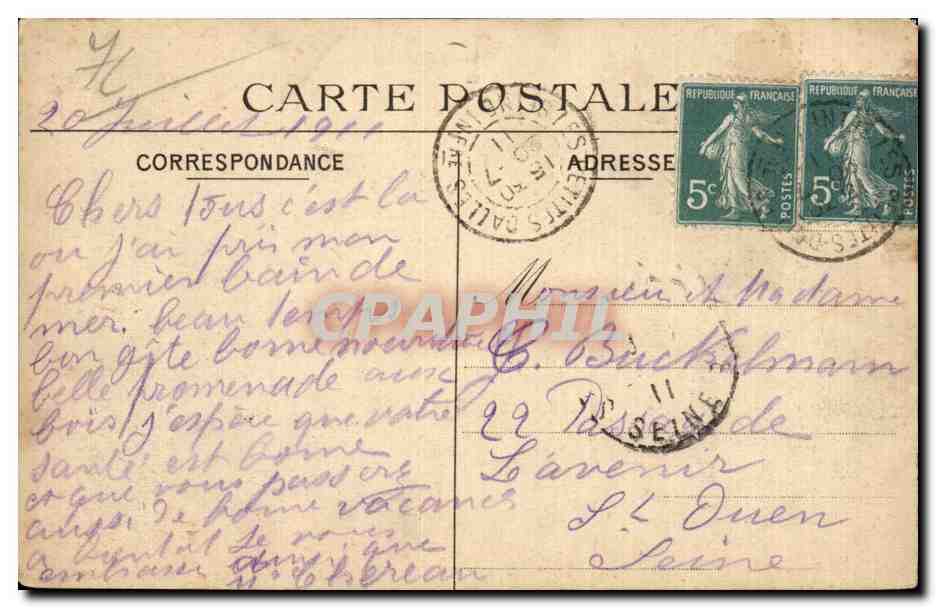 CARTE POSTALE
20 Juillet 1911
CORRESPONDANCE
ADRESSE
REPUBLIQUE FRANÇAISE
5c
POSTES
REPUBLIQUE FRANÇAISE
5c
POSTES
LES PETITES DALLES
Chers Tous c'est la
ou j'ai pris mon
premier bain de
mer. beau temp
bon gîte bonne nourriture
belle promenade aux
bois j'espère que votre
santé est bonne
et que vous passere
aussi de bonne vacances
a bientôt Je vous
embrasse ainsi que
Chereau
Monsieur et Madame
C. Buckelmann
22 Passage de
L'avenir
St Ouen
Seine
11
SEINE
CPAPHIL